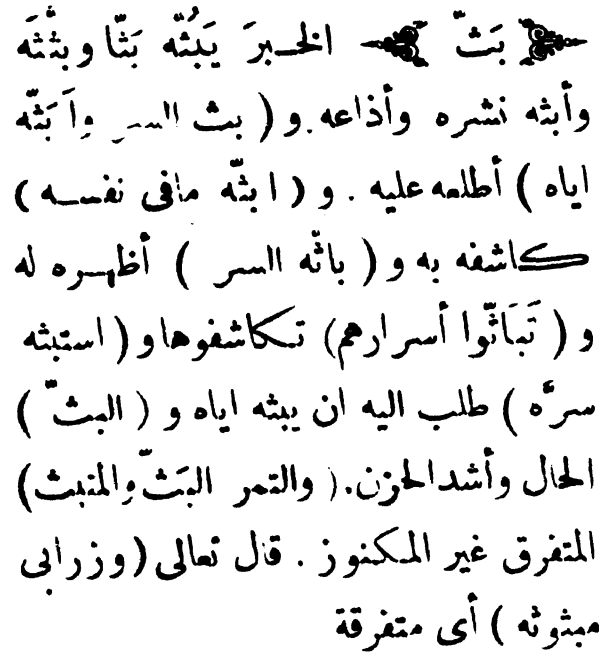 ﴿ بَثّ ﴾ الخبرَ يَبُثّه بَثّا وبثَّثَه
وأبثه نشره وأذاعه. و ( بث السر وأَبَثّه
اياه ) أطلعه عليه . و ( ابثّه مافى نفسه )
كاشفه به و ( باثّه السر ) أظهره له
و ( تَبَاثّوا أسرارهم) تكاشفوها و ( استبثه
سرَّه ) طلب اليه ان يبثه اياه و ( البثّ )
الحال وأشد الحزن. ( والتمر البَثّ والمنبث)
المتفرق غير المكنوز . قال تعالى ( وزرابى
مبثوثه ) أى متفرقة